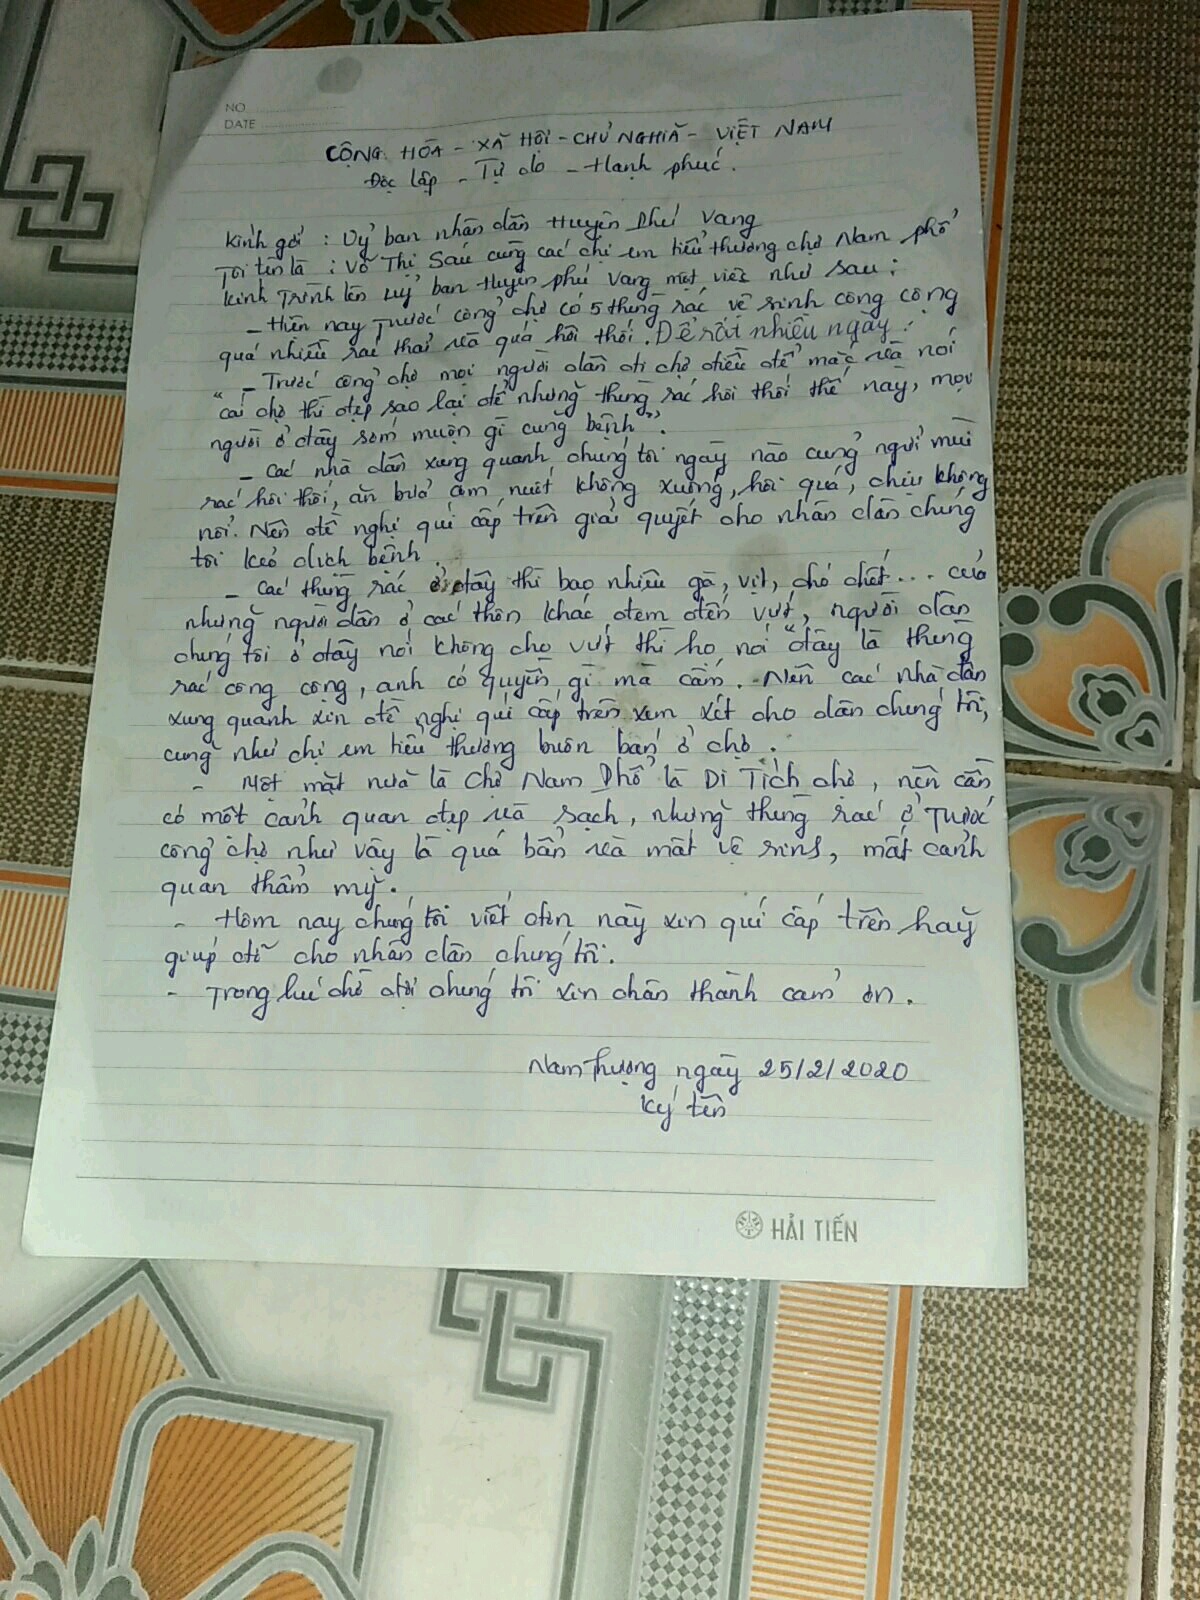 NO
DATE
CỘNG HÒA - XÃ HỘI - CHỦ NGHĨA - VIỆT NAM
Độc lập - Tự do - Hạnh phúc.
Kính gởi : Uỷ ban nhân dân Huyện Phú Vang
Tôi tên là : Võ Thị Sáu cùng các chị em tiểu thương chợ Nam phổ
Kính Trình lên uỷ ban Huyện phú Vang một việc như sau :
- Hiện nay Trước cổng chợ có 5 thùng rác vệ sinh công cộng
quá nhiều rác thải và quá hôi thối. Để rất nhiều ngày.
- Trước cổng chợ mọi người dân đi chợ điều để mắc và nói
"cái chợ thì đẹp sao lại để những thùng rác hôi thối thế này, mọi
người ở đây sớm muộn gì cũng bệnh".
- Các nhà dân xung quanh chúng tôi ngày nào cũng ngửi mùi
rác hôi thối, ăn bửa cơm nuốt không xuống, hôi quá, chịu không
nổi. Nên đề nghị quí cấp trên giải quyết cho nhân dân chúng
tôi kẻo dịch bệnh.
- Các thùng rác ở đây thì bao nhiêu gà, vịt, chó chết... của
những người dân ở các thôn khác đem đến vứt, người dân
chúng tôi ở đây nói không cho vứt thì họ nói "đây là thùng
rác công cộng, anh có quyền gì mà cấm. Nên các nhà dân
xung quanh xin đề nghị quí cấp trên xem xét cho dân chúng tôi,
cũng như chị em tiểu thương buôn bán ở chợ.
- Một mặt nữa là Chợ Nam Phổ là Di Tích chợ, nên cần
có một cảnh quan đẹp và sạch, nhưng thùng rác ở Trước
cổng chợ như vậy là quá bẩn và mất vệ sinh, mất cảnh
quan thẩm mỹ.
- Hôm nay chúng tôi viết đơn này xin quí cấp trên hãy
giúp đỡ cho nhân dân chúng tôi.
- Trong lúc chờ đợi chúng tôi xin chân thành cảm ơn.
Nam Thượng ngày 25/2/2020
Ký tên
HẢI TIẾN